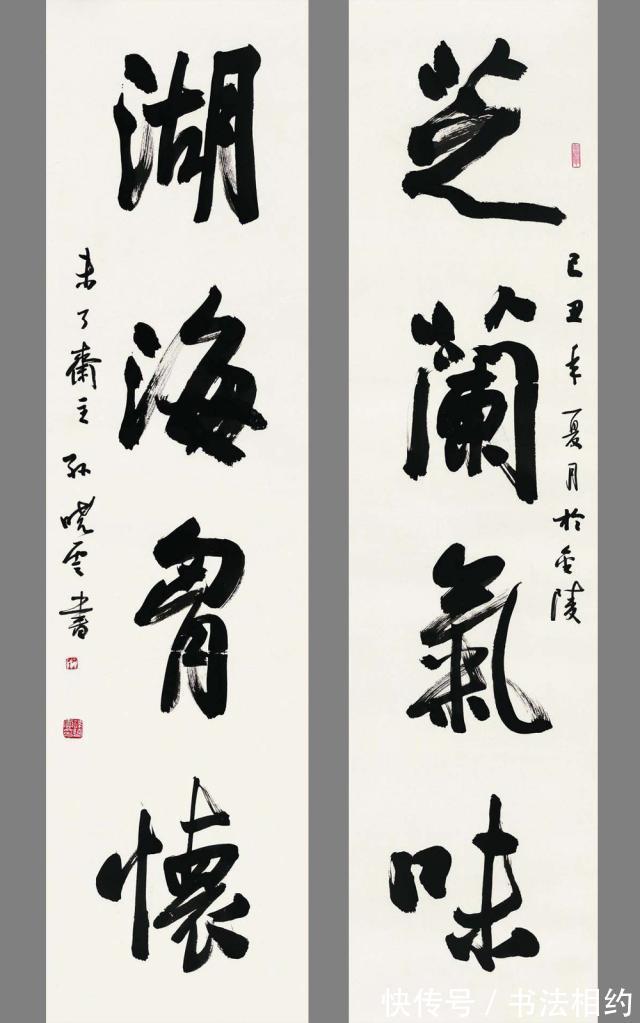 芝蘭氣味
己丑年夏月於金陵
湖海胷懷
未了齋主孙晓雲書
快传号/书法相约